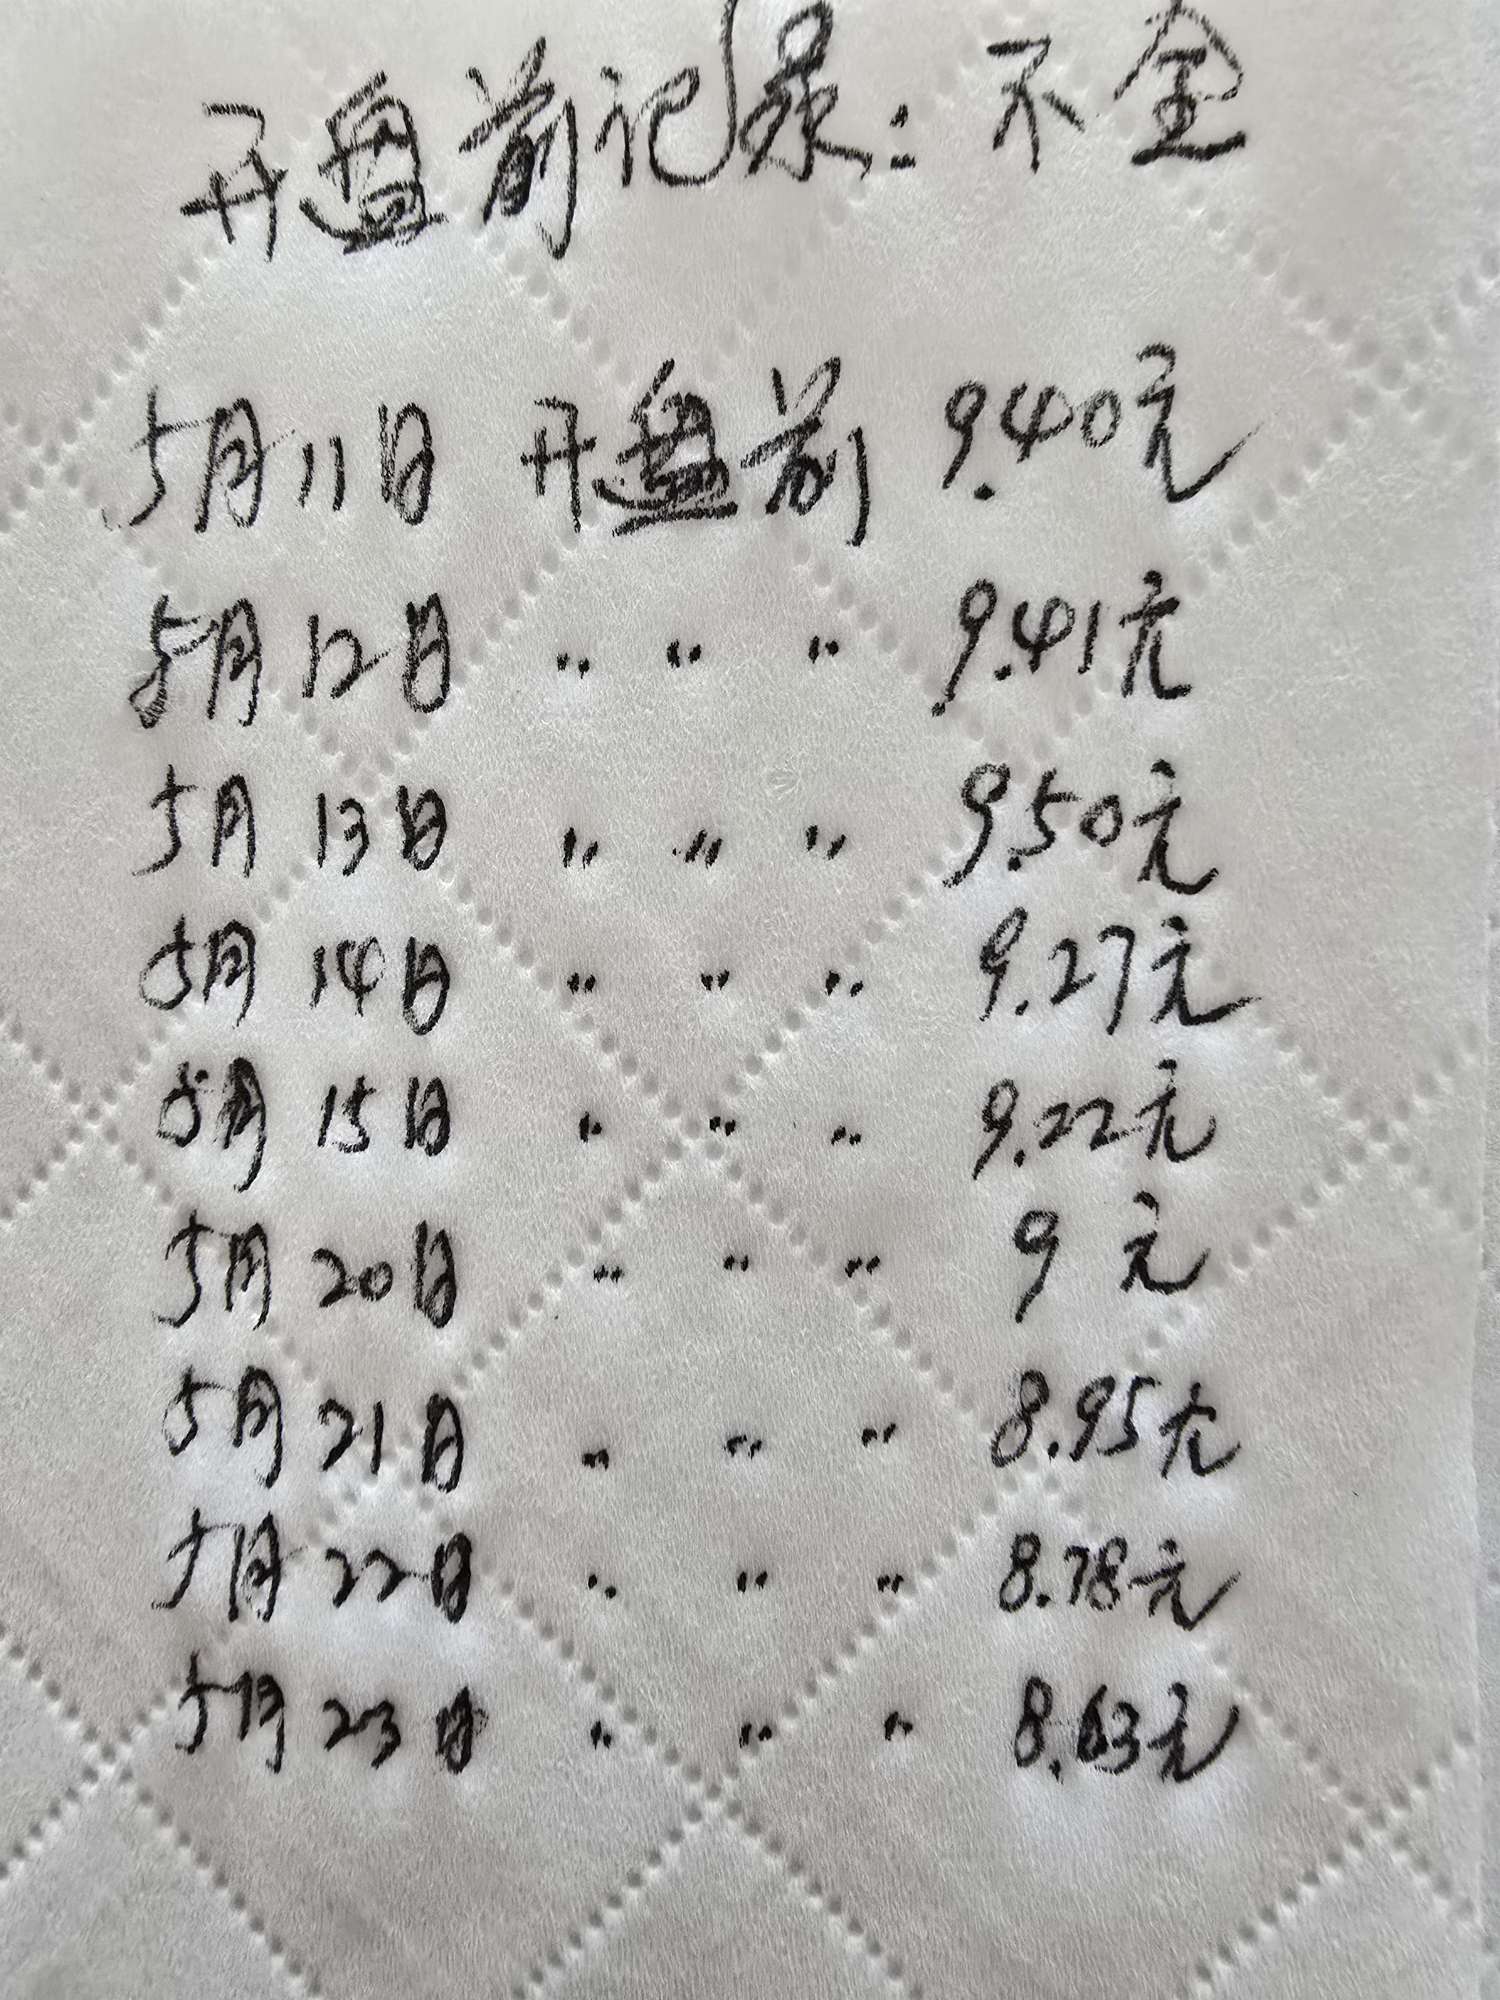 开盘前记录:不全
5月11日 开盘前 9.40元
5月12日 〃 〃 〃 9.41元
5月13日 〃 〃 〃 9.50元
5月14日 〃 〃 〃 9.27元
5月15日 〃 〃 〃 9.22元
5月20日 〃 〃 〃 9元
5月21日 〃 〃 〃 8.95元
5月22日 〃 〃 〃 8.78元
5月23日 〃 〃 〃 8.63元